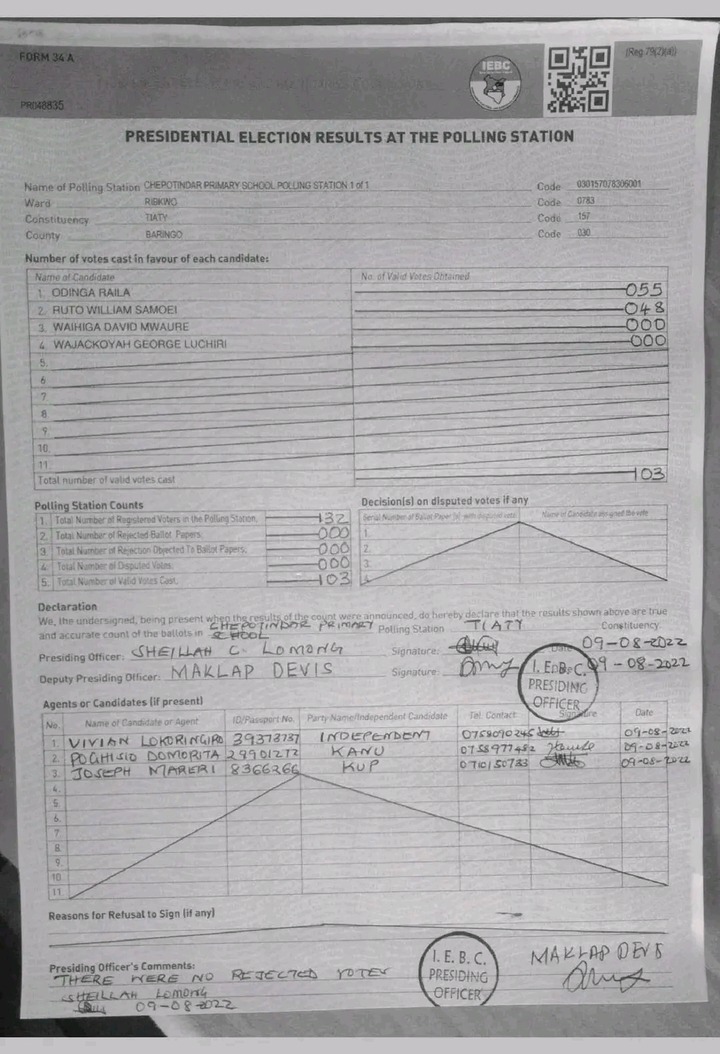 FORM 34 A
IEBC
(Reg.79(2)(a))
PR048835
PRESIDENTIAL ELECTION RESULTS AT THE POLLING STATION
Name of Polling Station CHEPOTINDAR PRIMARY SCHOOL POLLING STATION 1 of 1 Code 030157078306001
Ward RIBKWO Code 0783
Constituency TIATY Code 157
County BARINGO Code 030
Number of votes cast in favour of each candidate:
Name of Candidate No. of Valid Votes Obtained
1. ODINGA RAILA 055
2. RUTO WILLIAM SAMOEI 048
3. WAIHIGA DAVID MWAURE 000
4. WAJACKOYAH GEORGE LUCHIRI 000
5.
6
7.
8
9.
10.
11.
Total number of valid votes cast 103
Polling Station Counts
1. Total Number of Registered Voters in the Polling Station. 132
2. Total Number of Rejected Ballot Papers. 000
3. Total Number of Rejection Objected To Ballot Papers. 000
4. Total Number of Disputed Votes. 000
5. Total Number of Valid Votes Cast. 103
Decision(s) on disputed votes if any
Serial Number of Ballot Paper (s) with disputed vote Name of Candidate assigned the vote
1.
2.
3.
4.
Declaration
We, the undersigned, being present when the results of the count were announced, do hereby declare that the results shown above are true
and accurate count of the ballots in CHEPOTINDAR PRIMARY SCHOOL Polling Station TIATY Constituency.
Presiding Officer: SHEILLAH C. LOMONG Signature: Date 09-08-2022
Deputy Presiding Officer: MAKLAP DEVIS Signature: 09-08-2022
I. E. B. C.
PRESIDING
OFFICER
Agents or Candidates (if present)
No. Name of Candidate or Agent ID/Passport No. Party Name/Independent Candidate Tel. Contact Signature Date
1. VIVIAN LOKORINGIRO 39373737 INDEPENDENT 0758090245 09-08-2022
2. POGHISIO DOMORITA 29901272 KANU 0758977452 09-08-2022
3. JOSEPH MARERI 8366266 KUP 0710150783 09-08-2022
4.
5.
6.
7.
8.
9.
10
11
Reasons for Refusal to Sign (if any)
Presiding Officer's Comments:
THERE WERE NO REJECTED VOTES
SHEILLAH LOMONG
09-08-2022
I. E. B. C.
PRESIDING
OFFICER
MAKLAP DEVIS